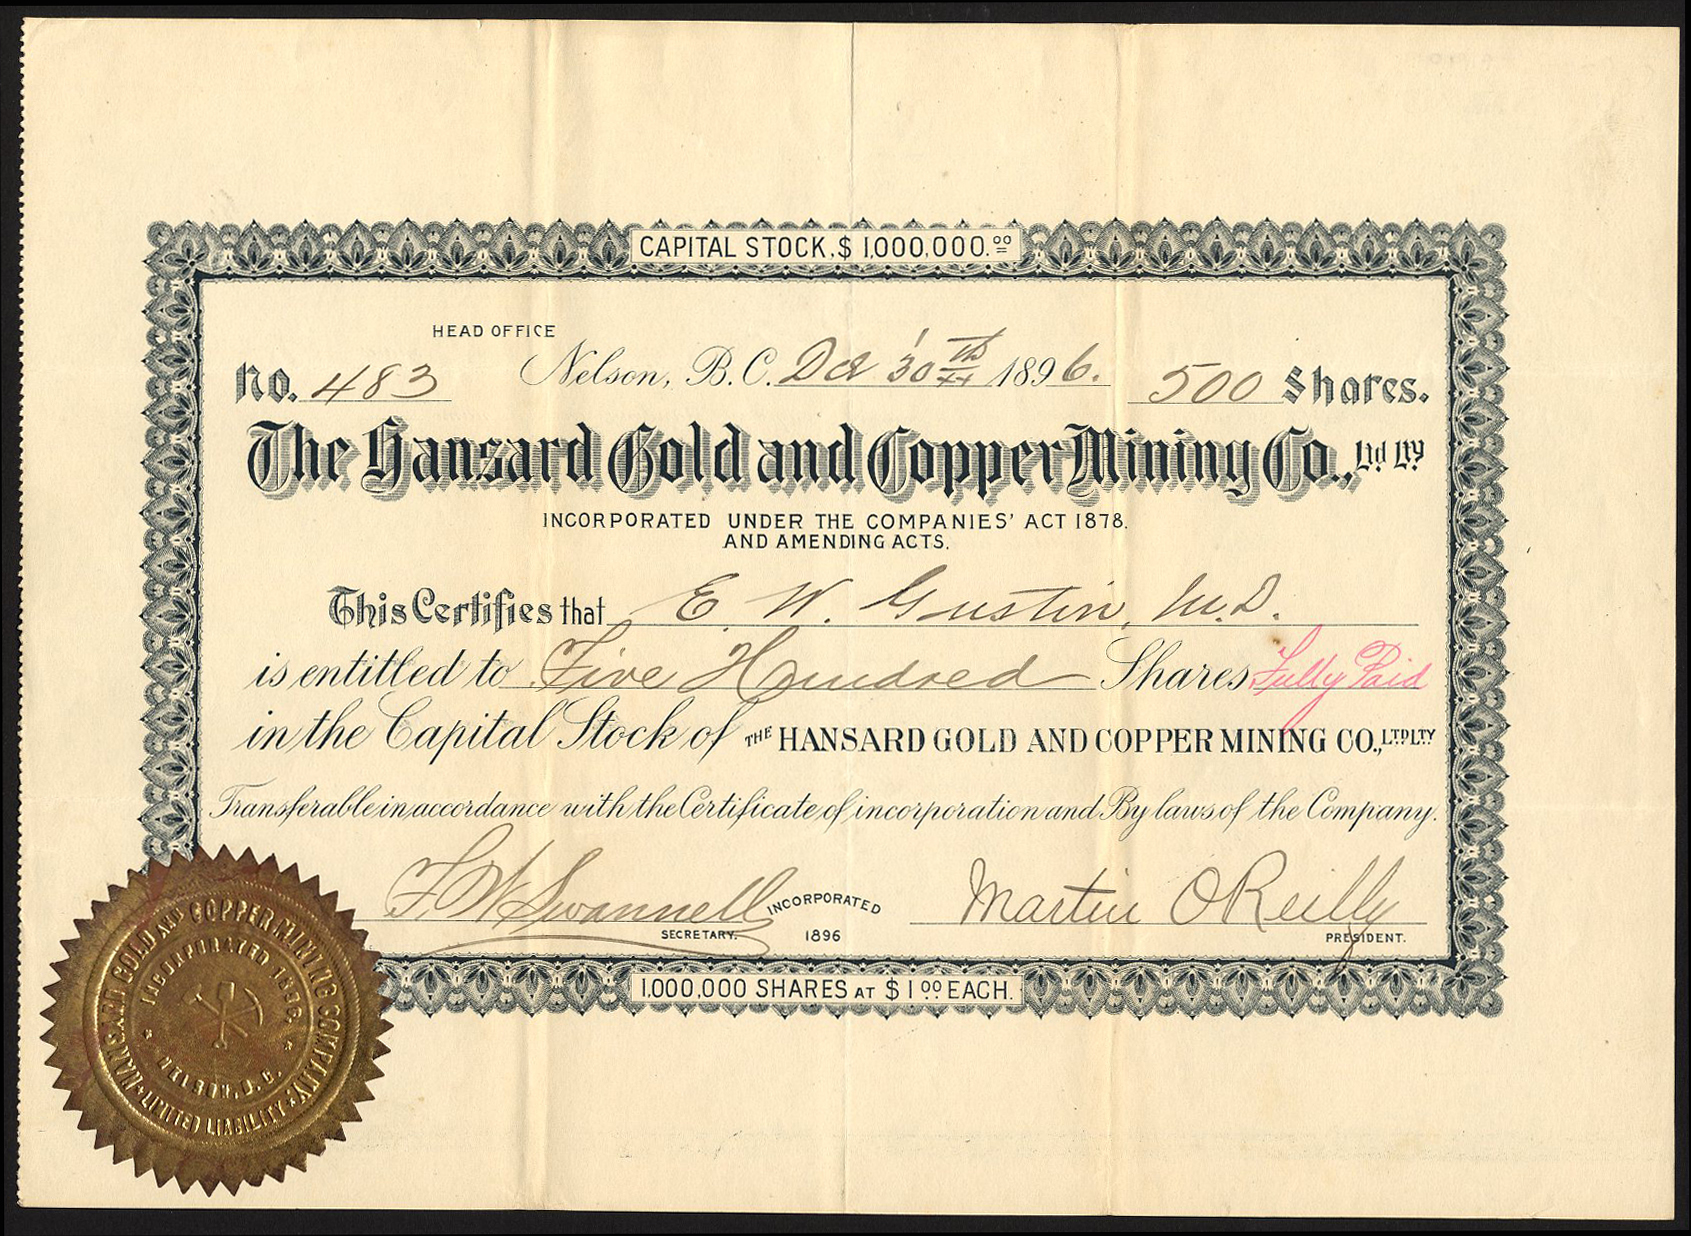 CAPITAL STOCK, $ 1,000,000.00
HEAD OFFICE
No. 483 Nelson, B.C. Oct 30th 1896. 500 Shares.
The Hansard Gold and Copper Mining Co., Ltd Lty
INCORPORATED UNDER THE COMPANIES' ACT 1878.
AND AMENDING ACTS.
This Certifies that E. W. Gustin, M.D.
is entitled to Five Hundred Shares Fully Paid
in the Capital Stock of THE HANSARD GOLD AND COPPER MINING CO., LTD LTY
Transferable in accordance with the Certificate of incorporation and By laws of the Company.
F. W. Swannell INCORPORATED Martin O'Reilly
SECRETARY. 1896 PRESIDENT.
1,000,000 SHARES AT $1.00 EACH.
HANSARD GOLD AND COPPER MINING COMPANY
LIMITED LIABILITY
INCORPORATED 1896.
NELSON, B.C.